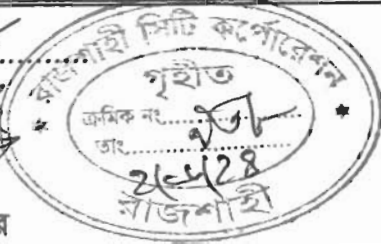 রাজশাহী সিটি কর্পোরেশন
গৃহীত
ক্রমিক নং
তাং
রাজশাহী
র